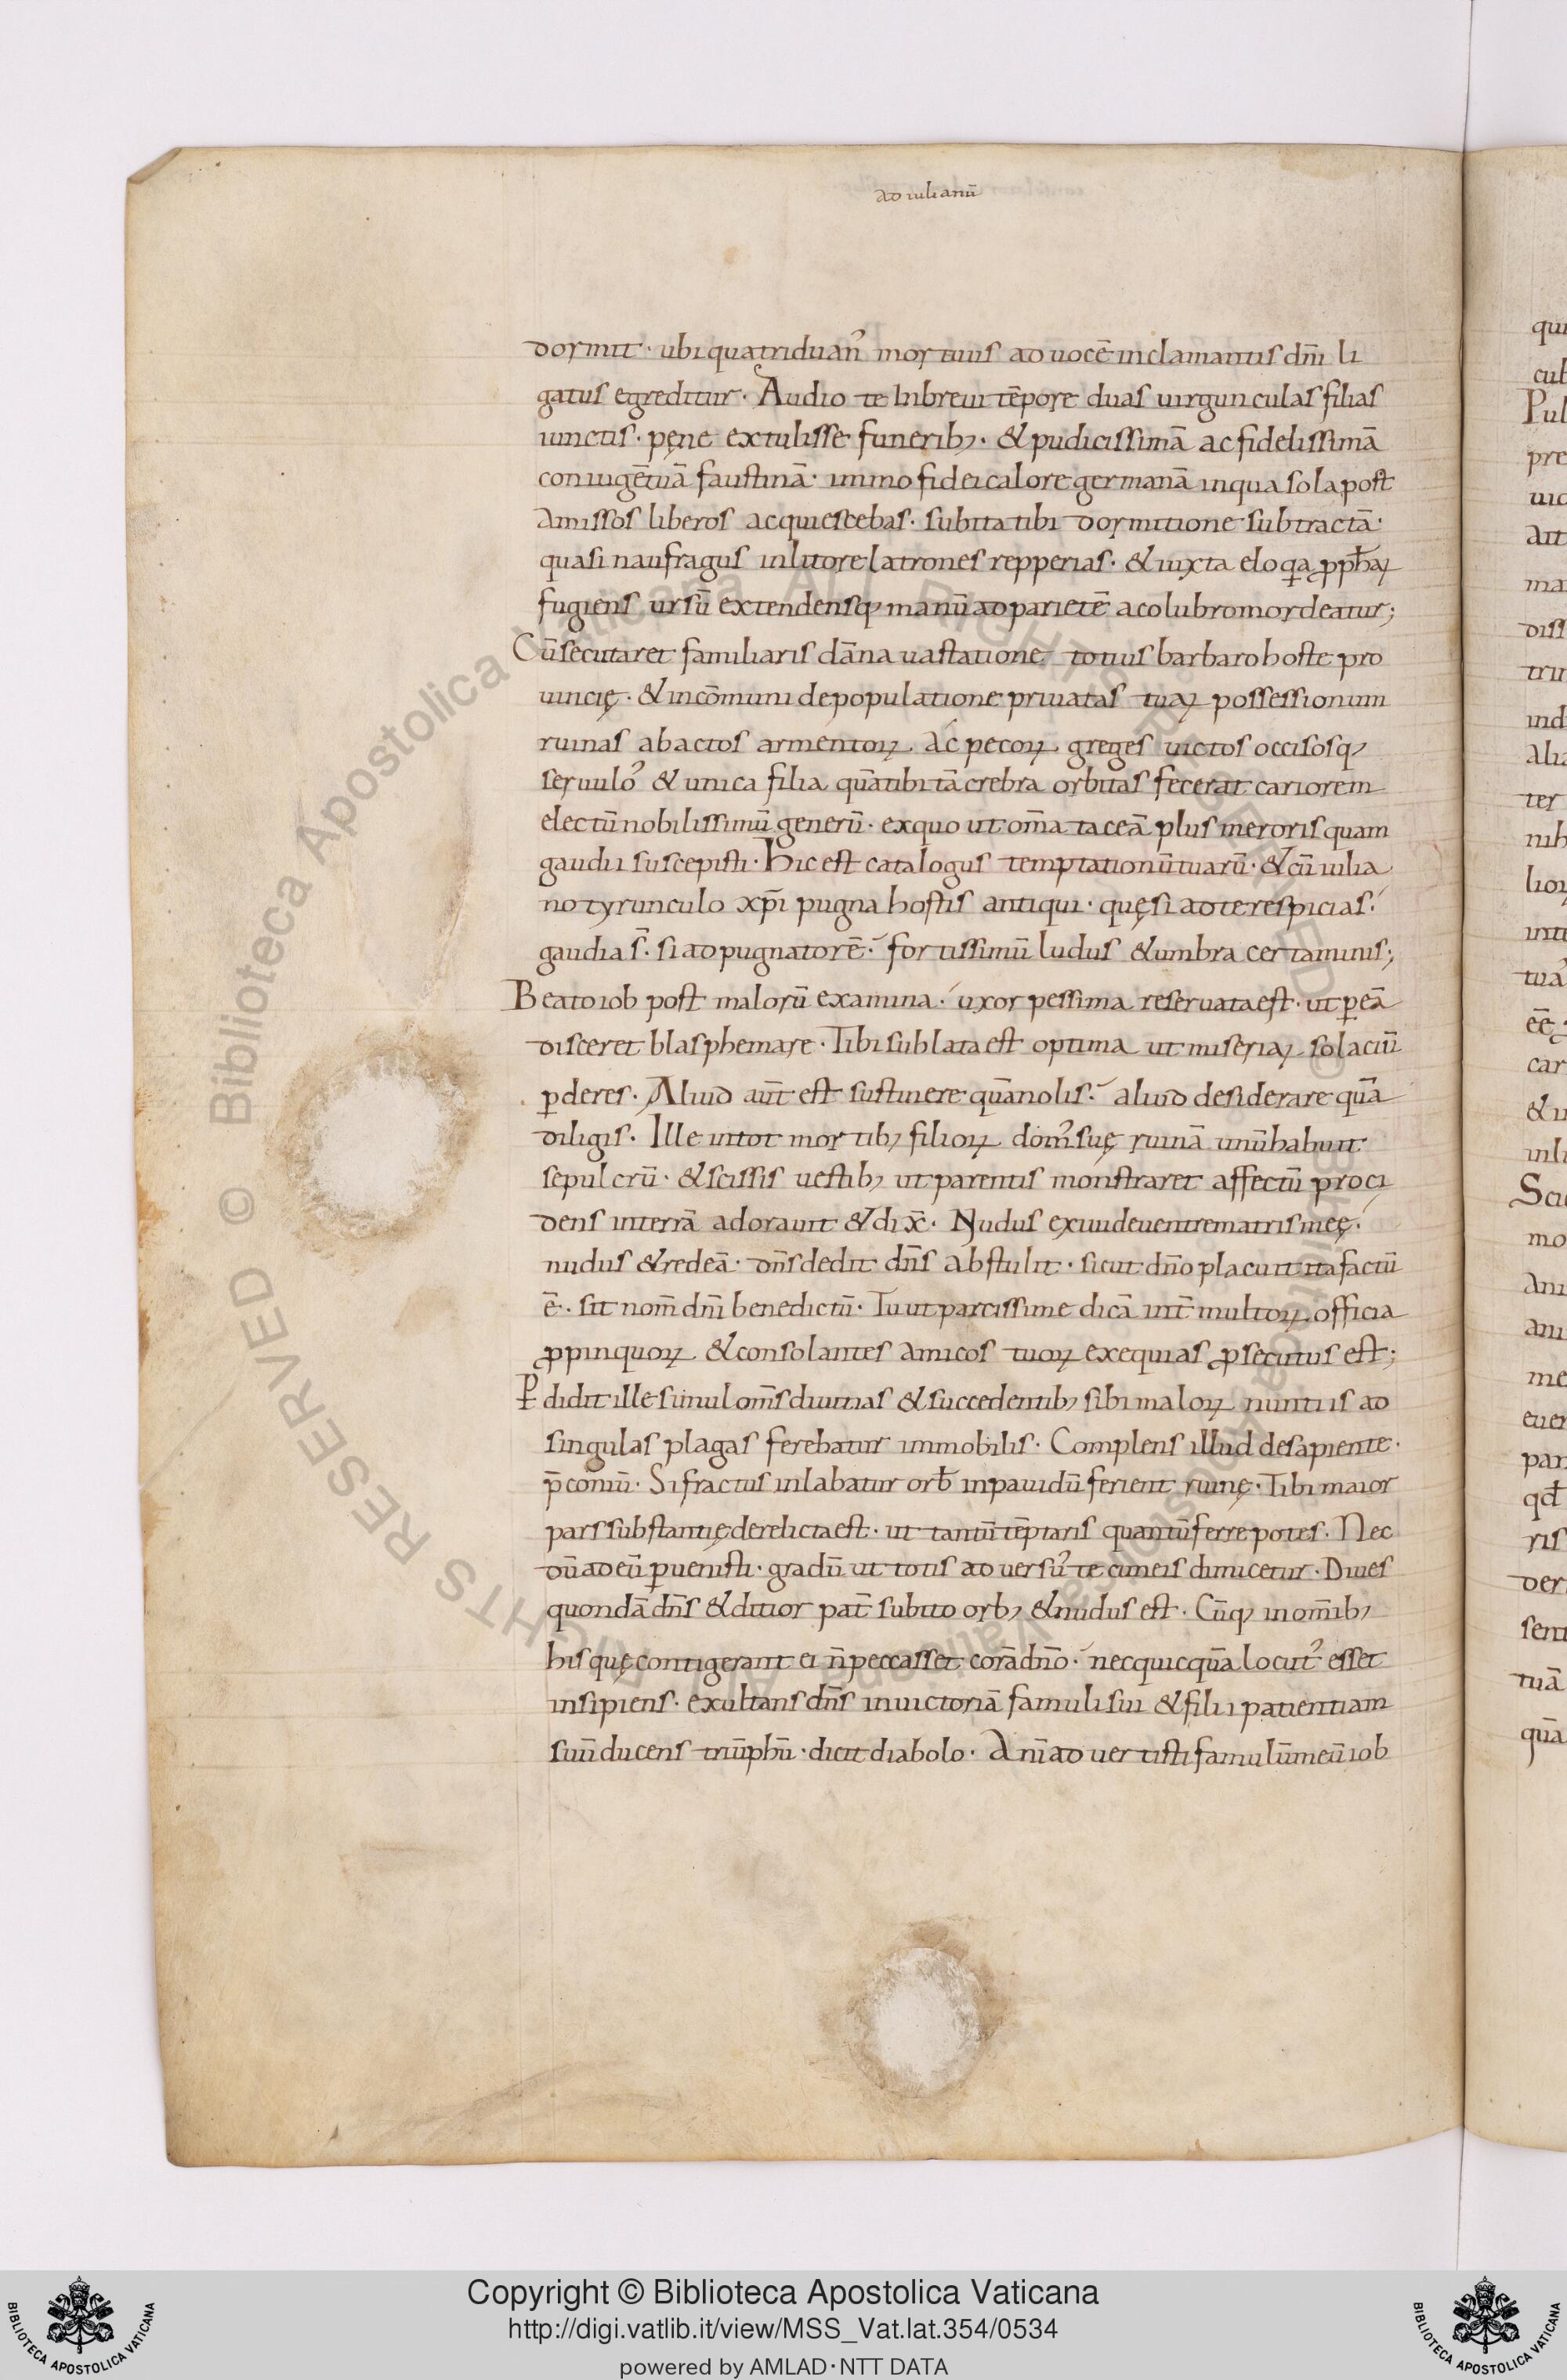 ad iulianū
dormit · ubi quatriduan᾽ mortuus ad uocē inclamantis dn̄i li
gatus egreditur · Audio te inbreui tēpore duas uirgunculas filias
iunctis · pęne extulisse funerib; · & pudicissimā ac fidelissimā
coniugē tuā faustinā · immo fidei calore germanā inqua sola post
amissos liberos acquiescebas · subita tibi dormitione subtractā ·
quasi naufragus inlitore latrones repperias · & iuxta eloqa ꝓph̄aꝝ
fugiens ursū extendensq; manū ad parietē acolubro mordeatur;
Cū secutaret familiaris dāna uastatione totius barbaro hoste pro
uincię · & incōmuni depopulatione priuatas tuaꝝ possessionum
ruinas abactos armentoꝝ ac pecoꝝ greges uictos occisosq;
seruulo᾽ & unica filia quā tibi tā crebra orbitas fecerat cariorem
electū nobilissimū generū · exquo ut om̄a taceā plus meroris quam
gaudii suscepisti · Hic est catalogus temptationū tuarū · & cū iulia
no tyrunculo xp̄i pugna hostis antiqui · quę si ad te respicias ·
gaudia s̄ · si ad pugnatorē · fortissimū ludus & umbra certaminis;
Beato iob post malorū examina · uxor pessima reseruata est · ut ꝑ eā
disceret blasphemare · Tibi sublata est optima ut miseriaꝝ solaciū
ꝑderes · Aliud aūt est sustinere quā nolis · aliud desiderare quā
diligis · Ille intot mortib; filioꝝ dom᾽ suę ruinā unū habuit
sepulcrū · & scissis uestib; ut parentis monstraret affectū proci
dens interrā adorauit & dix̄ · Nudus exiui deuentre matris meę ·
nudus & redeā · dn̄s dedit dn̄s abstulit · sicut dn̄o placuit ita factū
ē · sit nom̄ dn̄i benedictū · Tu ut parcissime dicā int̄ multoꝝ officia
ꝓpinquoꝝ & consolantes amicos tuoꝝ exequias ꝓsecutus est;
Ꝑdidit ille simul om̄s diuitias & succedentib; sibi maloꝝ nuntiis ad
singulas plagas ferebatur immobilis · Complens illud desapiente ·
p̄coniū · Si fractus inlabatur orb̄ inpauidū ferient ruinę · Tibi maior
pars substantię derelicta est · ut tantū tēptaris quantū ferre potes · Nec
dū ad eū ꝑuenisti · gradū ut totis aduersū᾽ te cuneis dimicetur · Diues
quondā dn̄s & ditior pat̄ subito orb; & nudus est · Cūq; in om̄ib;
his quę contigerant ei n̄ peccasset corā dn̄o · nec quicquā locut᾽ esset
insipiens · exultans dn̄s inuictoriā famuli sui & filii patientiam
suū ducens triūphū · dicit diabolo · Anī aduertisti famulū meū iob
© Biblioteca Apostolica Vaticana ALL RIGHTS RESERVED © Biblioteca Apostolica Vaticana ALL RIGHTS RESERVED
BIBLIOTECA APOSTOLICA VATICANA
Copyright © Biblioteca Apostolica Vaticana
http://digi.vatlib.it/view/MSS_Vat.lat.354/0534
powered by AMLAD · NTT DATA
BIBLIOTECA APOSTOLICA VATICANA